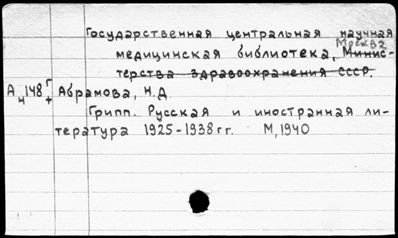 Государственная центральная научная
Москва
медицинская библиотека, Минис-
терства здравоохранения СССР.
А 148 Абрамова, Н.Д.
Грипп. Русская и иностранная ли-
тература 1925-1938 гг. М, 1940